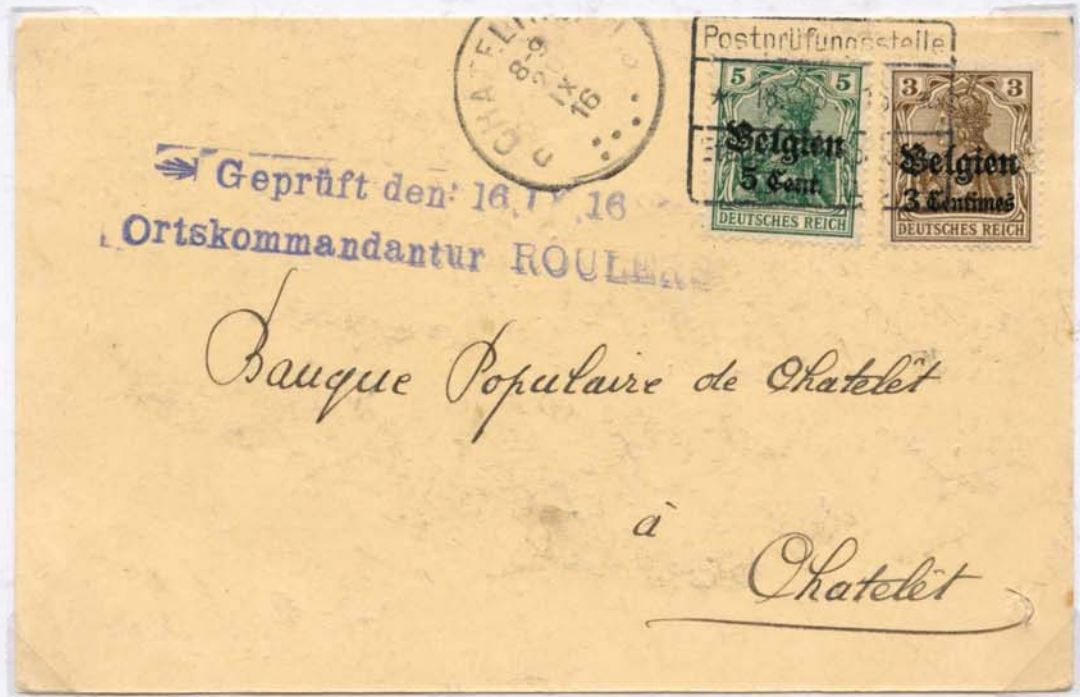 CHATELINEAU
8-9
IX
16
Postprüfungsstelle
5 5
Belgien
5 Cent.
DEUTSCHES REICH
3 3
Belgien
3 Centimes
DEUTSCHES REICH
Geprüft den: 16.IX.16
Ortskommandantur ROULERS
Banque Populaire de Chatelêt
à
Chatelêt